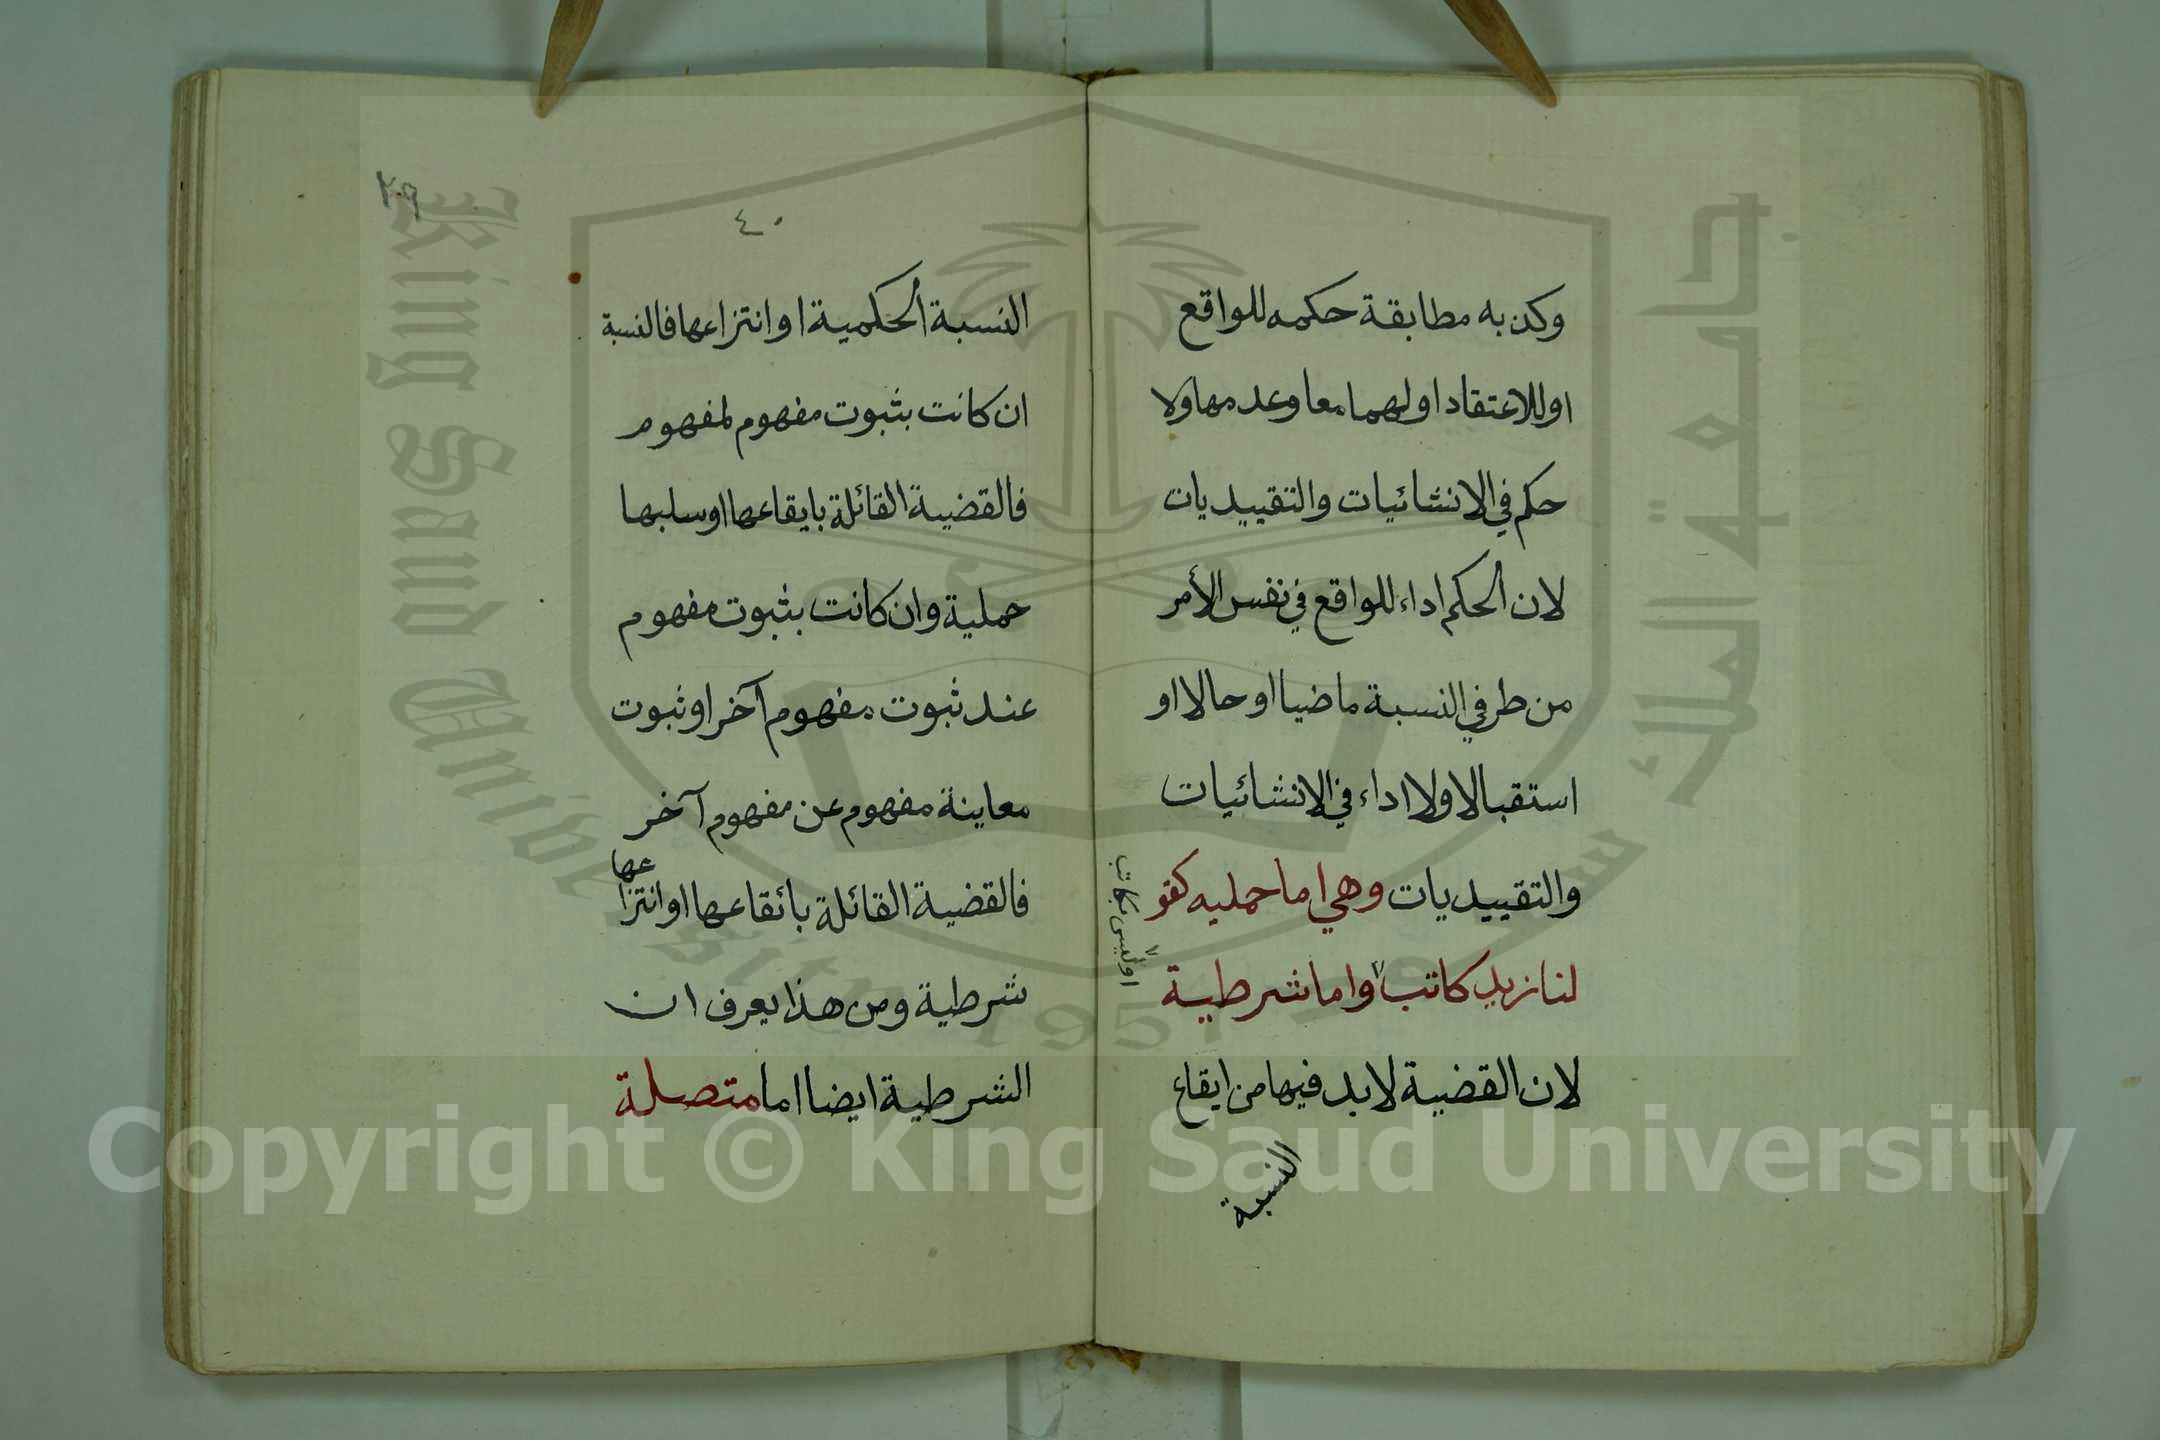 وكذبه مطابقة حكمه للواقع
او للاعتقاد او لهما معا وعدمها ولا
حكم في الانشائيات والتقييديات
لان الحكم اداء للواقع في نفس الأمر
من طرفي النسبة ماضيا او حالا او
استقبالا ولا اداء في الانشائيات
والتقييديات وهي اما حمليه كقو
لنا زيد كاتب واما شرطية
او ليس بكاتب
لان القضية لا بد فيها من ايقاع
النسبة
٢٩
٤٠
النسبة الحكمية او انتزاعها فالنسبة
ان كانت بثبوت مفهوم لمفهوم
فالقضية القائلة بايقاعها او سلبها
حملية وان كانت بثبوت مفهوم
عند ثبوت مفهوم آخر او ثبوت
معاينة مفهوم عن مفهوم آخر
فالقضية القائلة بائقاعها او انتزاعها
شرطية ومن هذا يعرف ان
الشرطية ايضا اما متصلة
King Saud University
جامعة الملك سعود
1957
Copyright © King Saud University